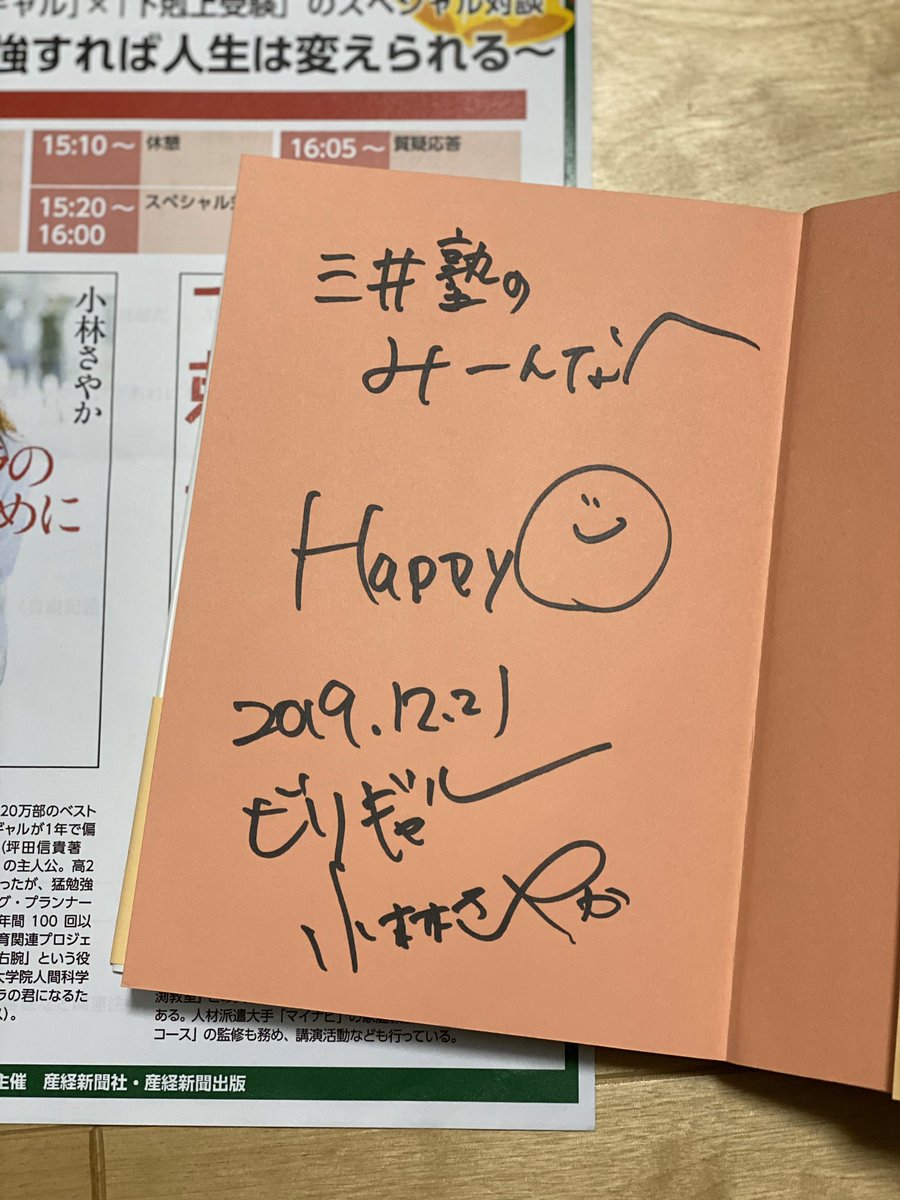 ギャル」×「下剋上受験」のスペシャル対談
強すれば人生は変えられる〜
15:10〜 休憩
16:05〜 質疑応答
15:20〜
16:00
スペシャル
小林さやか
めに
三井塾の
みーんなへ
Happy
2019.12.21
ビリギャル
小林さやか
20万部のベスト
ギャルが1年で偏
(坪田信貴著
の主人公。高2
ったが、猛勉強
グ・プランナー
年間100回以
育関連プロジェ
右腕」という役
大学院人間科学
ラの君になるた
ス)。
ある。人材派遣大手「マイナビ」の
コース」の監修も務め、講演活動なども行っている。
主催 産経新聞社・産経新聞出版